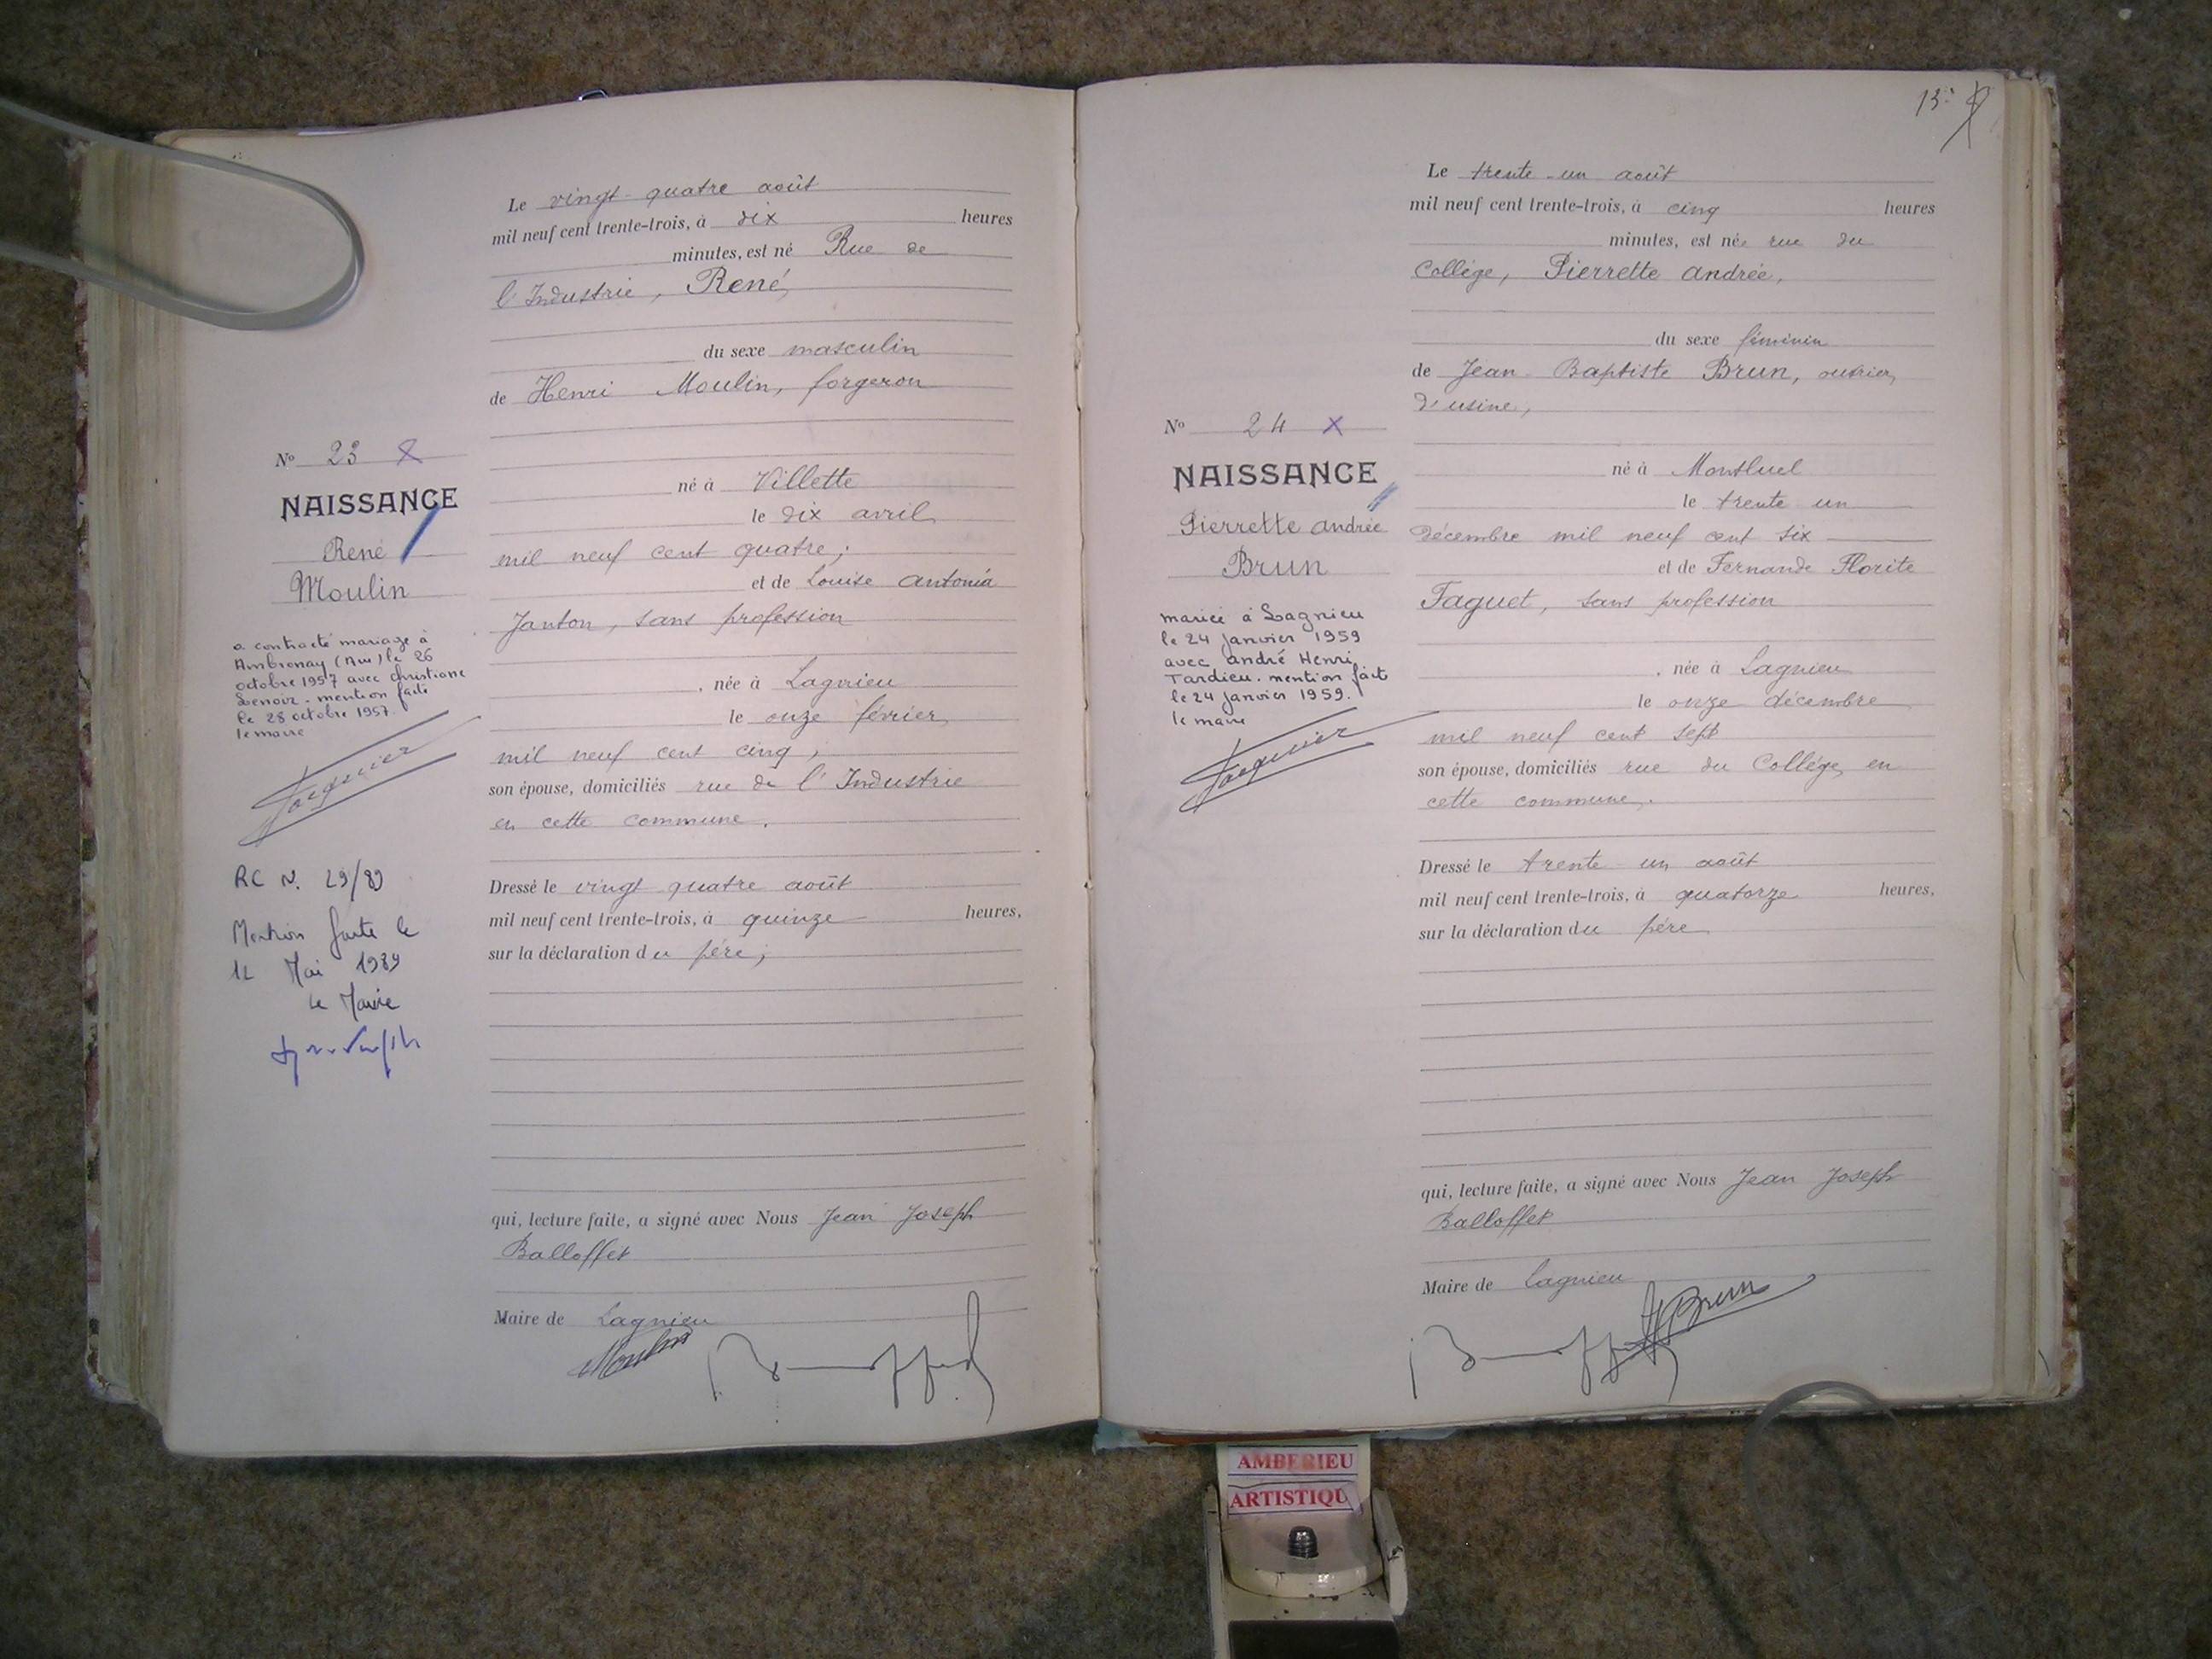 Le vingt-quatre août
mil neuf cent trente-trois, à dix heures
minutes, est né Rue de
l'Industrie, René,
du sexe masculin
de Henri Moulin, forgeron
né à Villette
le dix avril
mil neuf cent quatre;
et de Louise Antonia
Janton, sans profession
, née à Lagnieu
le onze février
mil neuf cent cinq,
son épouse, domiciliés rue de l'Industrie
en cette commune.
Dressé le vingt quatre août
mil neuf cent trente-trois, à quinze heures,
sur la déclaration du père;
qui, lecture faite, a signé avec Nous Jean Joseph
Balloffet
Maire de Lagnieu
Moulin
No 23
NAISSANCE
René
Moulin
a contracté mariage à
Ambronay (Ain) le 26
octobre 1957 avec Christiane
Lenoir. mention faite
le 28 octobre 1957.
le maire
RC N. 29/89
Mention faite le
12 Mai 1989
Le Maire
13
Le trente-un août
mil neuf cent trente-trois, à cinq heures
minutes, est née rue du
Collège, Pierrette Andrée,
du sexe féminin
de Jean Baptiste Brun, ouvrier
d'usine,
né à Montluel
le trente un
décembre mil neuf cent six
et de Fernande Florite
Faguet, sans profession
, née à Lagnieu
le onze décembre
mil neuf cent sept
son épouse, domiciliés rue du Collège, en
cette commune.
Dressé le trente un août
mil neuf cent trente-trois, à quatorze heures,
sur la déclaration du père
qui, lecture faite, a signé avec Nous Jean Joseph
Balloffet
Maire de Lagnieu
Brun
No 24
NAISSANCE
Pierrette Andrée
Brun
mariée à Lagnieu
le 24 janvier 1959
avec André Henri
Tardieu. mention fait
le 24 janvier 1959.
le maire
AMBERIEU
ARTISTIQU